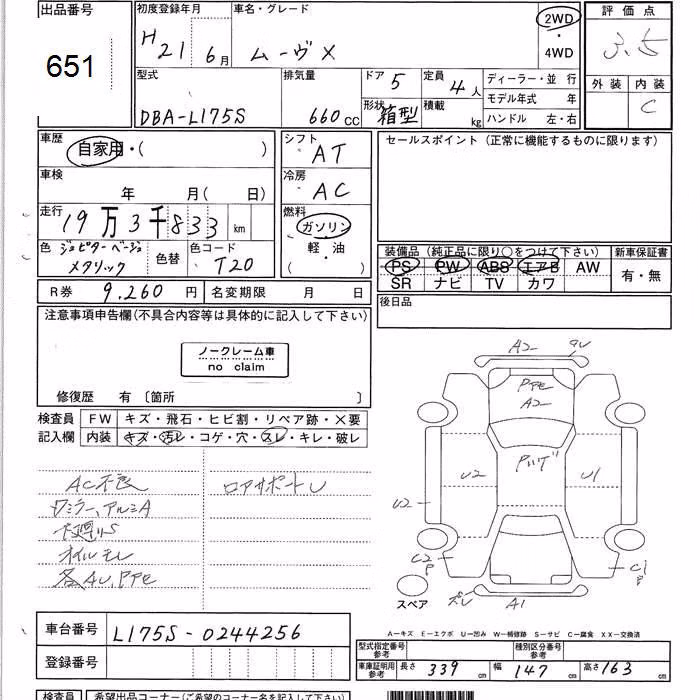 出品番号
651
初度登録年月
H21 6月
車名・グレード
ムーヴX
2WD
・
4WD
評価点
3.5
外装 内装
C
型式
DBA-L175S
排気量
660 CC
ドア 5
定員 4人
形状 箱型
積載 kg
ディーラー・並行
モデル年式 年
ハンドル 左・右
車歴
自家用・( )
車検
年 月( 日)
走行
19万3千833 km
色 ジュピターベージュ
メタリック
色替
色コード
T20
シフト
AT
冷房
AC
燃料
ガソリン
軽・油
( )
セールスポイント (正常に機能するものに限ります)
装備品 (純正品に限り○をつけて下さい)
新車保証書
PS PW ABS エアB AW
SR ナビ TV カワ
有・無
R券 9,260 円
名変期限 月 日
後日品
注意事項申告欄(不具合内容等は具体的に記入して下さい)
ノークレーム車
no claim
修復歴 有 〔箇所 〕
検査員
記入欄
FW キズ・飛石・ヒビ割・リペア跡・X要
内装 キズ・汚レ・コゲ・穴・スレ・キレ・破レ
AC不良
ロアサポートU
ワミラー、アルミA
下廻りS
オイルモレ
各AU、PPe
A2
PPe
A2
U2
U1
U2
C2
P
C1
P
A1
スペア
A-キズ E-エクボ U-凹み W-補修跡 S-サビ C-腐食 XX-交換済
車台番号
L175S-0244256
登録番号
型式指定番号
参考
種別区分番号
参考
車庫証明用
参考
長さ 339 cm
幅 147 cm
高さ 163 cm
検査員
希望出品コーナー(ご希望のコーナー名を記入して下さい)